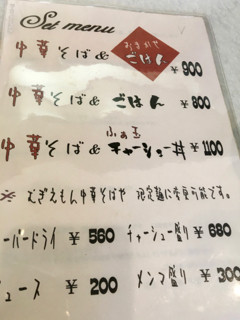 Set menu
中華そば& ごはん ¥900
中華そば& ごはん ¥800
ふぁ玉
中華そば& チャーシュー丼 ¥1100
※ むぎえもん中華そばや 限定麺に変更可能です。
ーパードライ ¥560 チャーシュー盛り ¥680
ュース ¥200 メンマ盛り ¥300